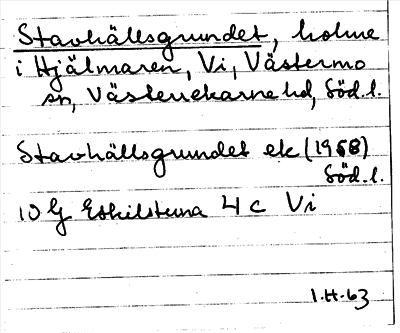 Stavhällsgrundet, holme
i Hjälmaren, Vi, Västermo
sn, Västerrekarne hd, Söd. l.
Stavhällsgrundet ek (1958)
Söd. l.
10 G Eskilstuna 4 c Vi
I.H-63